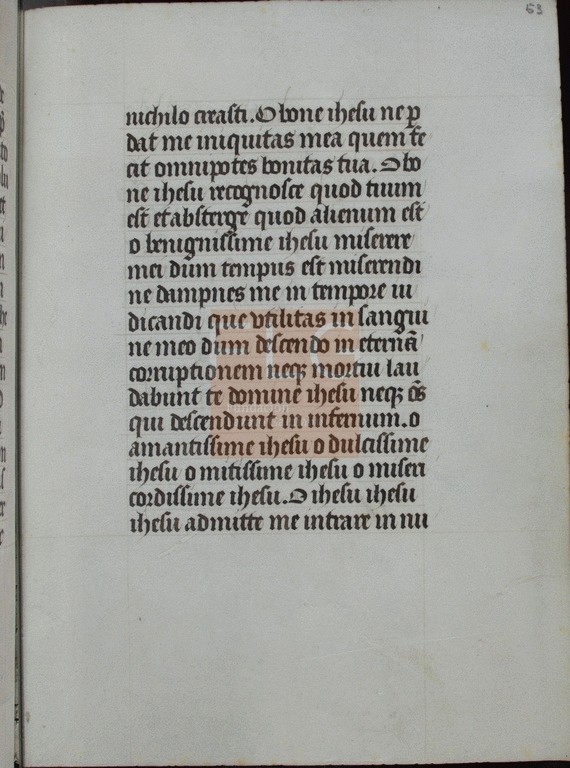 63
nichilo creasti. O bone ihesu ne p̄
dat me iniquitas mea quem fe
cit omnipotēs bonitas tua. O bo
ne ihesu recognosce quod tuum
est et absterge quod alienum est
o benignissime ihesu miserere
mei dum tempus est miserendi
ne dampnes me in tempore iu
dicandi que vtilitas in sangui
ne meo dum descendo in eternā
corruptionem neqȝ mortui lau
dabunt te domine ihesu neqȝ ōs
qui descendunt in infernum. o
amantissime ihesu o dulcissime
ihesu o mitissime ihesu o miseri
cordissime ihesu. O ihesu ihesu
ihesu admitte me intrare in nu